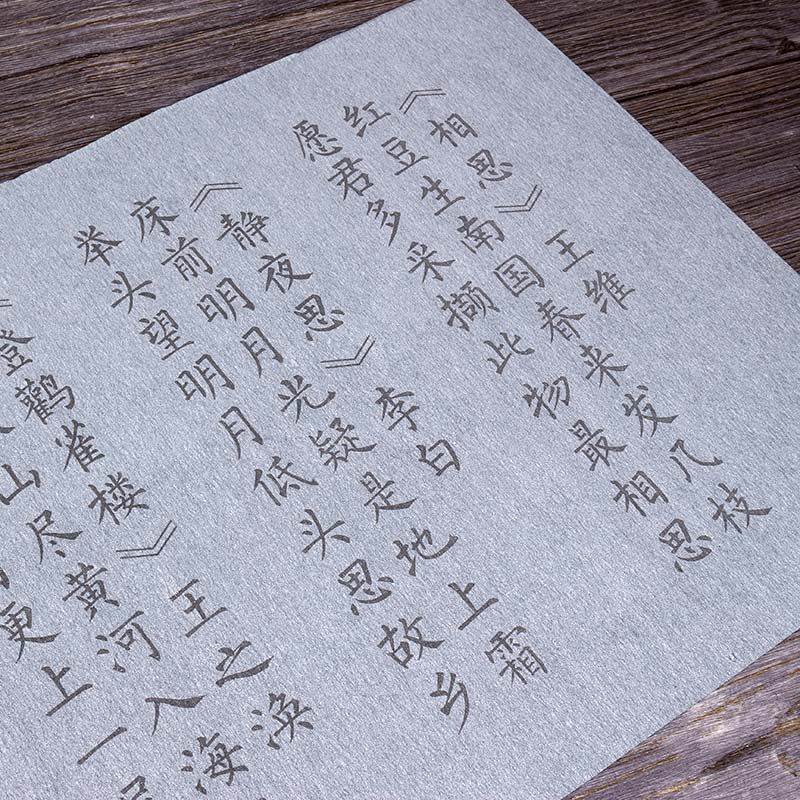 《相思》 王维
红豆生南国春来发几枝
愿君多采撷此物最相思
《静夜思》 李白
床前明月光疑是地上霜
举头望明月低头思故乡
《登鹳雀楼》 王之涣
山尽黄河入海
更上一